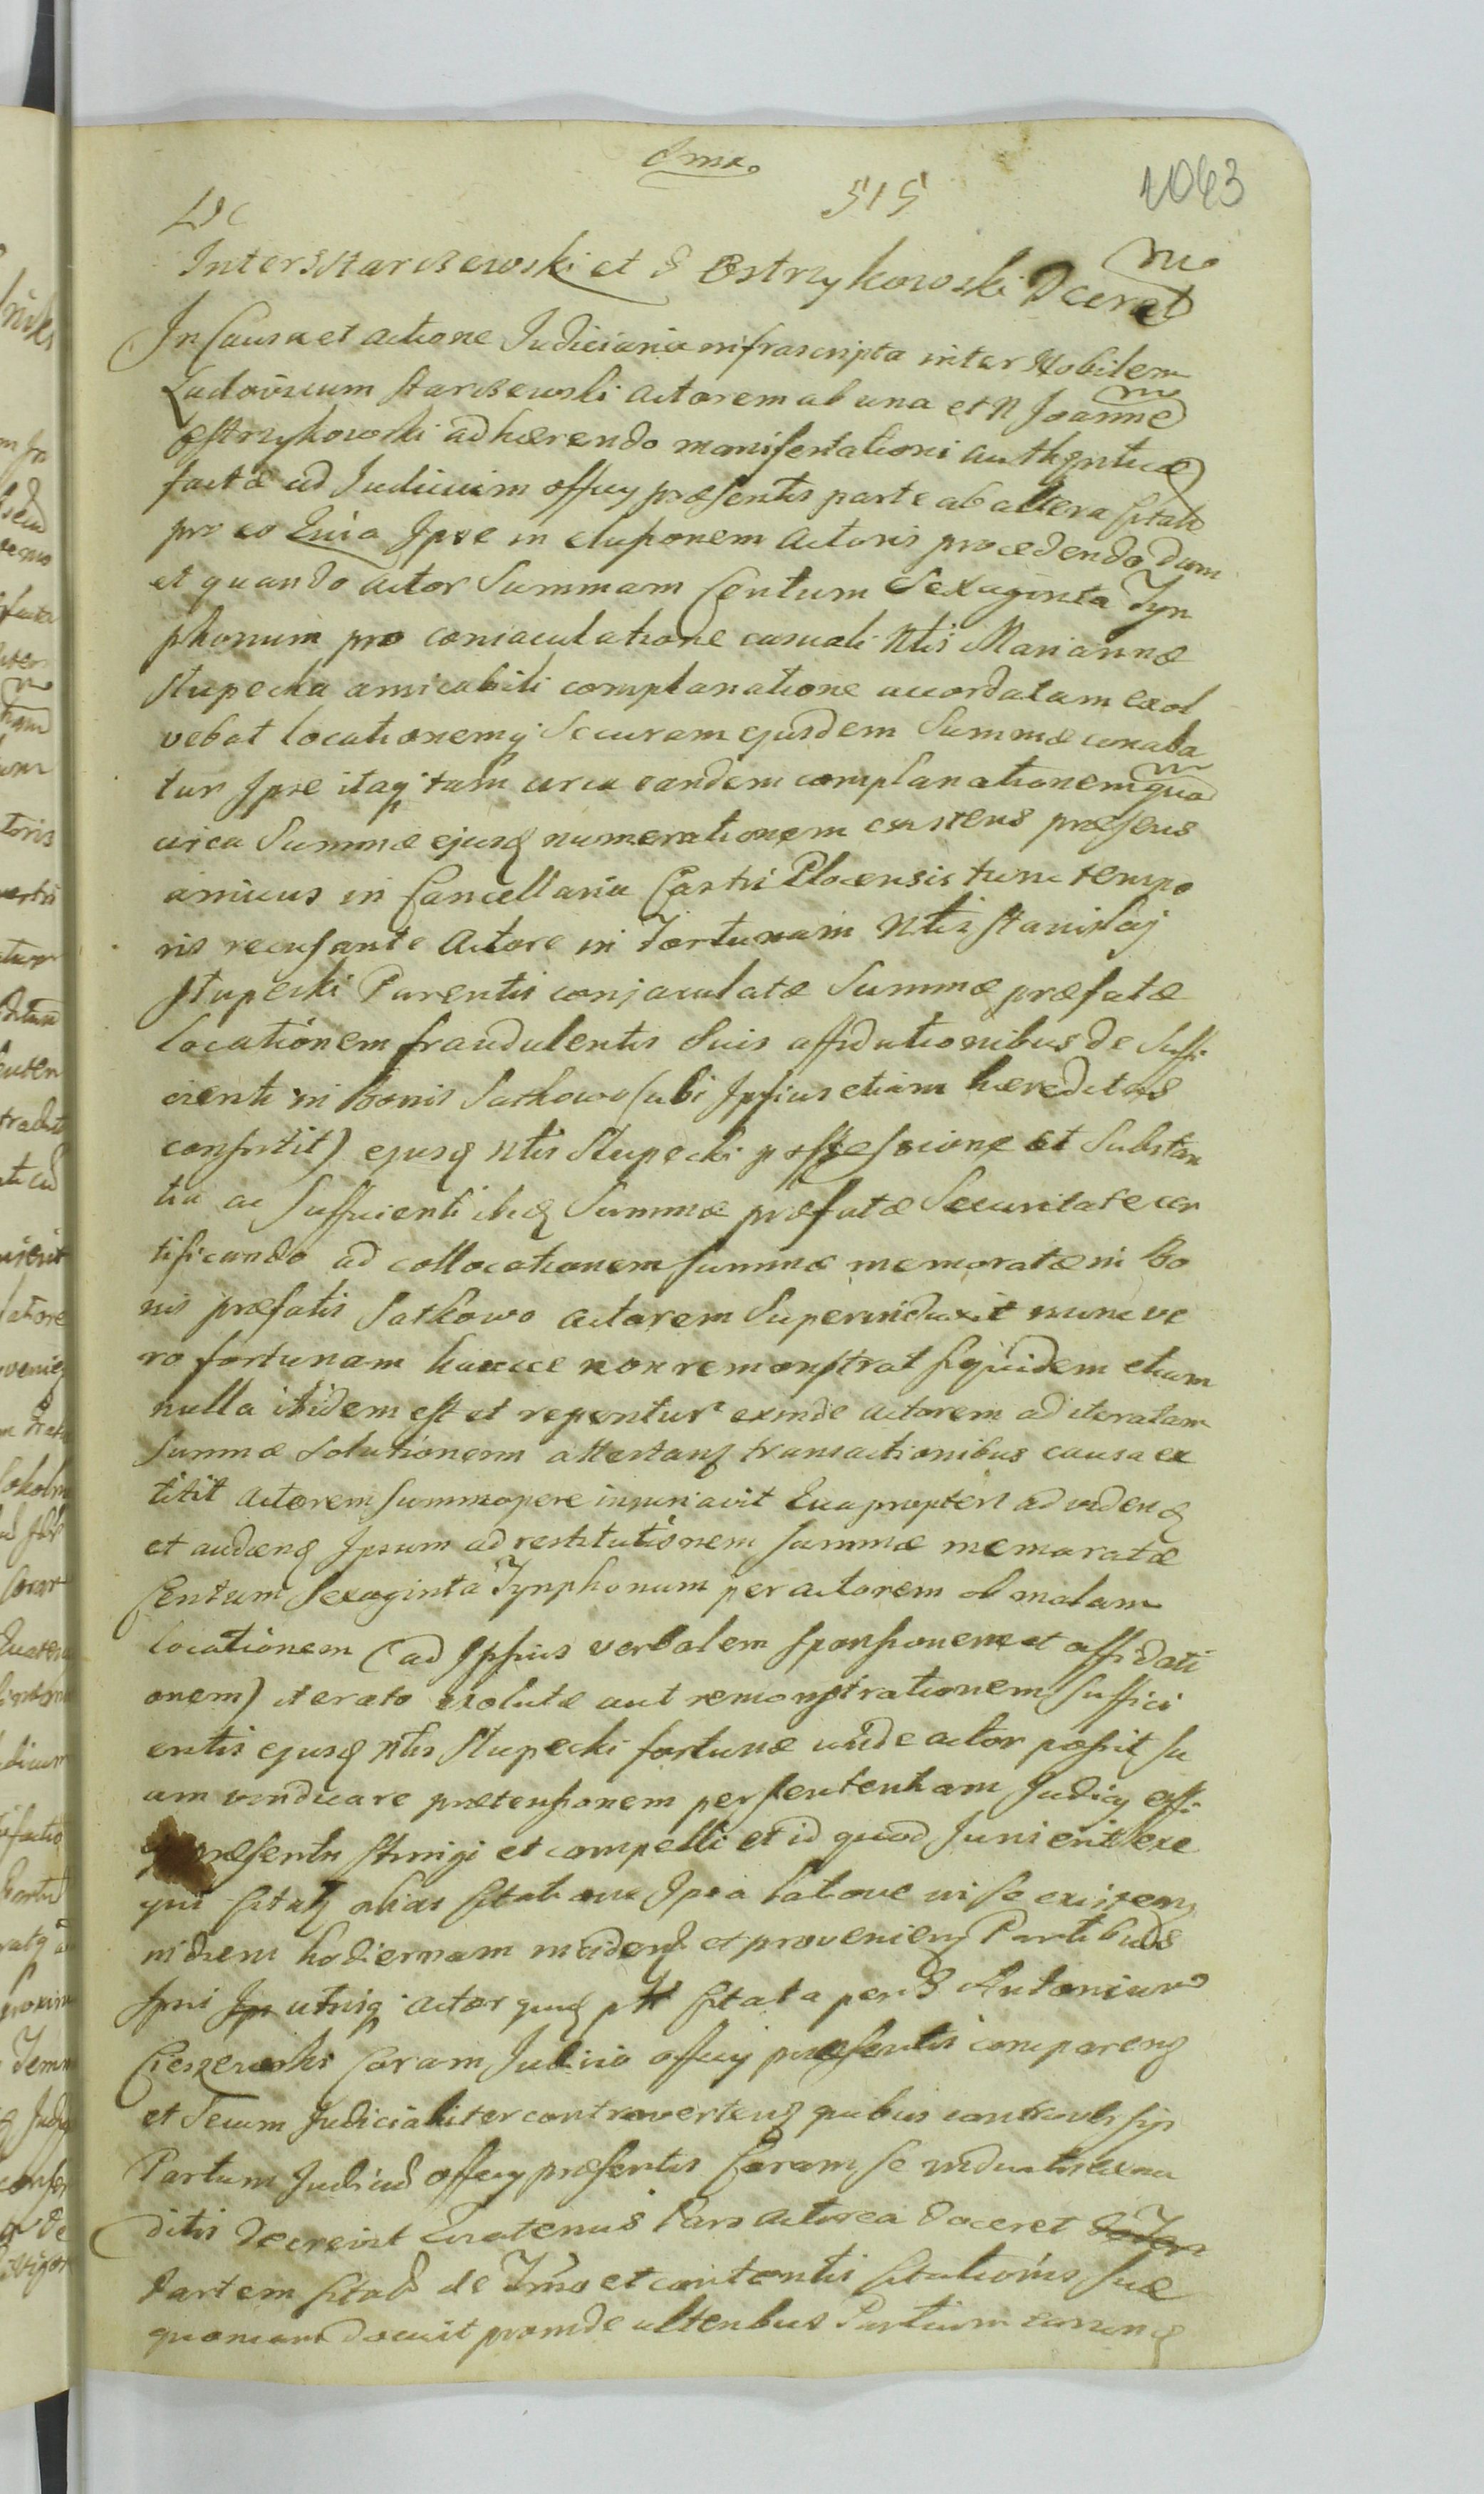 515
1043
Inter Starczewski et Ostrzykowski Dceret
In Causa et actione Judiciaria infrascripta inter Nobilem
Ludovicum Starczewski actorem ab una et N Joanne
Ostrzykowski adhærendo manifestationi authenticæ
factæ ad Judicium officij præsentis parte ab altera
pro eo Quia Ipse in actoris procedendo dum
et quando actor Summam Centum Sexaginta Tyn
phonum pro coniaculatione casuali Ntis Mariannæ
Słupecka amicabili complanatione accordatam exol
vebat locationemq Securam ejusdem Summæ conaba
tur Ipse itaq tam circa eandem complanationem qua
circa Summæ ejusq numerationem existens præsens
amicus in Cancellaria Castri Plocensis tunc tempo
ris recusante Actore in Fortunam Ntis Stanislaj
Słupecki Parentis conjaculatæ Summæ præfatæ
locationem fraudulentis Suis affidationibus de Suffi
cienti in Bonis Satkowo (ubi Ipsius etiam hæreditas
consistit) ejusq Ntis Słupecki possessione et Substan
tia ac sufficienti Summæ præfatæ Securitate cer
tificando ad collocationem summæ memoratæ in Bo
nis præfatis Satkowo actorem Superinduxit nunc ve
ro fortunam hancce non remonstrat siquidem etiam
nulla ibidem est et reperitur exinde actorem ad iteratam
Summæ Solutionem transactionibus causa ex
titit actorem summopere injuriavit Eapropter ad videnq
et audienq Ipsum ad restitutionem summæ memoratæ
Centum Sexaginta Tynphonum per actorem ob malam
locationem (ad Ipsius verbalem sponsionem et affidati
onem) iterato exolutæ aut remonstrationem suffici
entis ejusq Ntis Słupecki fortunæ unde actor possit su
am vindicare prætensionem per sententiam Judicij offi
præsentis stringi et compelli et id quod Juris erit exe
qui alias Ipsa latione in se
in diem hodiernam incidenq et provenienq Partibus
Ipsis utrisq actor citata per G Antonium
Cieszewski Coram Judicio officij præsentis comparenq
et Secum Judicialiter controvertenq quibus
Partium Judicium officij præsentis Coram se inductis exau
ditis Decrevit Quatenus Pars actorea doceret
Partem de Tmo et contentis citationis suæ
quoniam docuit proinde ulterioribus Partium